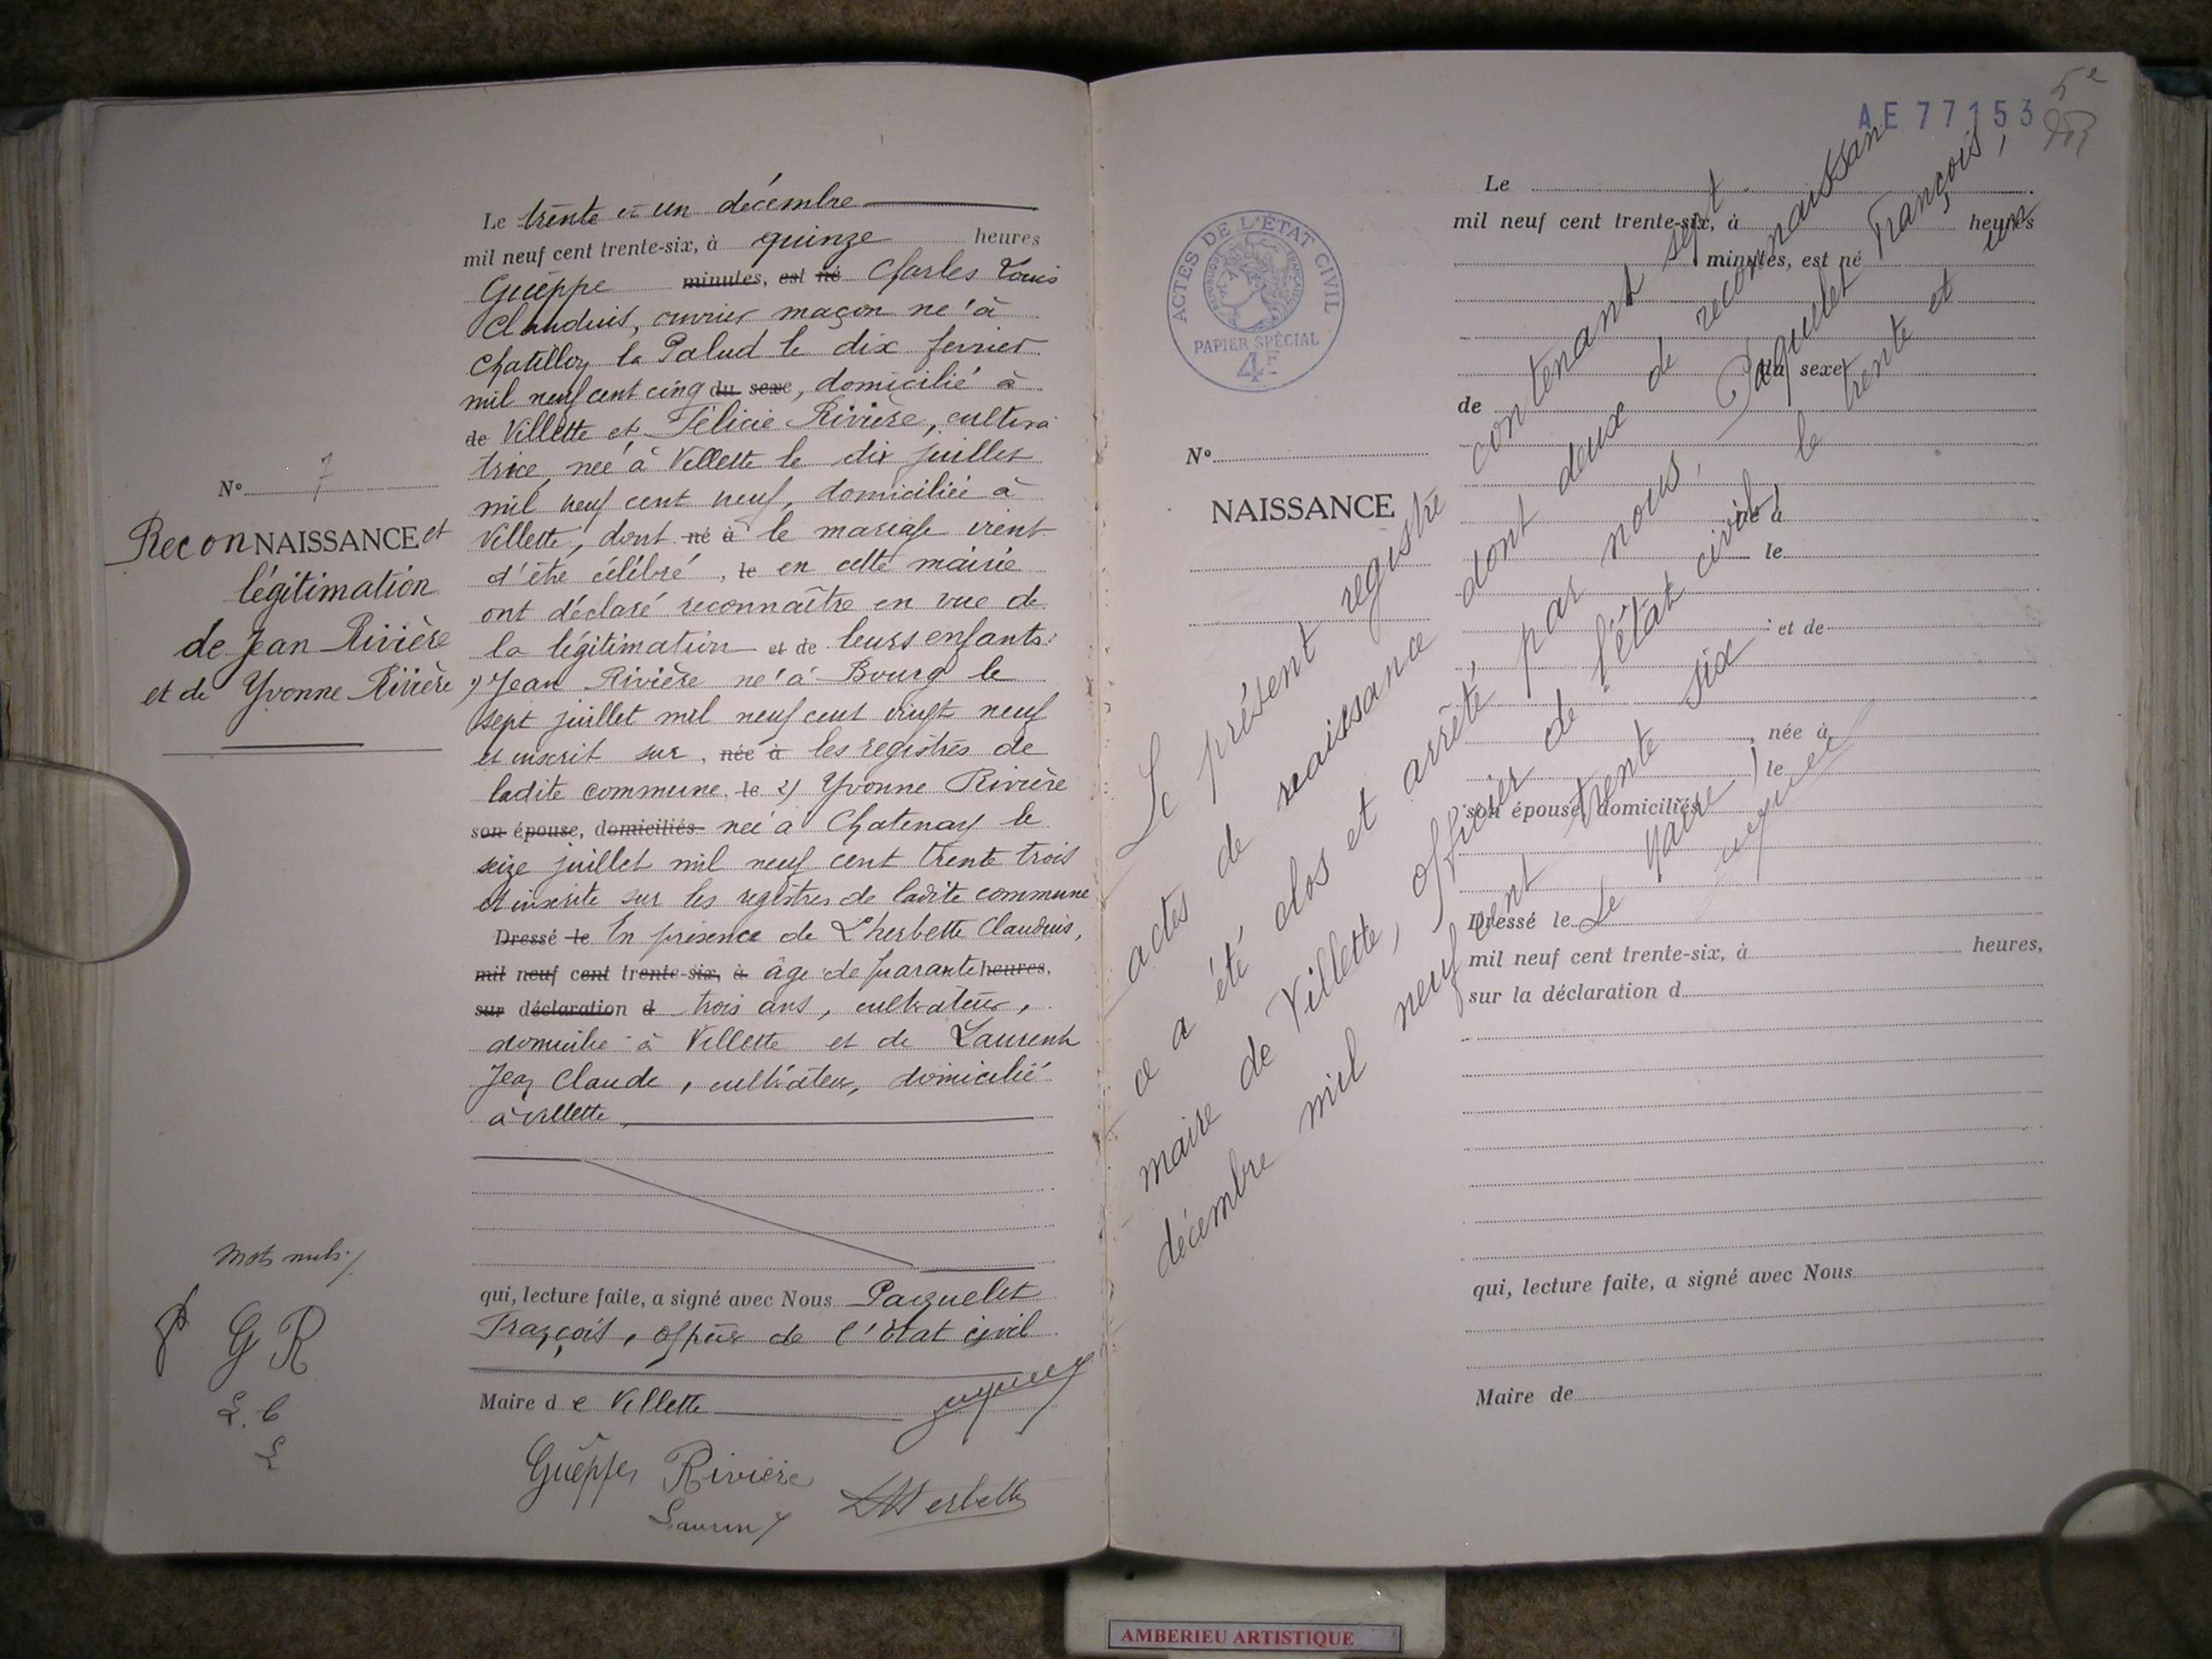 N° 7
ReconNAISSANCE et
légitimation
de Jean Rivière
et de Yvonne Rivière
Mots nuls
G R
L. C
L
Le trente et un décembre
mil neuf cent trente-six, à quinze heures
Guêppe minutes, est né Charles Louis
Claudius, ouvrier maçon né à
Chatillon la Palud le dix fevrier
mil neuf cent cinq du sexe, domicilié à
de Villette et Félicie Rivière, cultiva
trice, née à Villette le dix juillet
mil neuf cent neuf, domiciliée à
Villette, dont né à le mariage vient
d'être célébré, le en cette mairie
ont déclaré reconnaître en vue de
la légitimation et de leurs enfants:
1) Jean Rivière né à Bourg le
sept juillet mil neuf cent vingt neuf
et inscrit sur, née à les registres de
ladite commune, le 2) Yvonne Rivière
son épouse, domiciliés née à Chatenay le
seize juillet mil neuf cent trente trois
et inscrite sur les registres de ladite commune
Dressé le En présence de L'herbette Claudius,
mil neuf cent trente-six, à âgé de quarante heures,
sur déclaration d trois ans, cultivateur,
domicilié à Villette et de Laurent
Jean Claude, cultivateur, domicilié
à Villette
qui, lecture faite, a signé avec Nous Paquelet
François, officier de l'état civil
Maire d e Villette
Guêppe Rivière
Laurent LHerbette
AE 77153
5e
ACTES DE L'ETAT CIVIL
REPUBLIQUE FRANÇAISE
PAPIER SPÉCIAL
4F
N°
NAISSANCE
Le
mil neuf cent trente-six, à heures
minutes, est né
du sexe
de
né à
le
et de
, née à
le
son épouse, domiciliés
Dressé le
mil neuf cent trente-six, à heures,
sur la déclaration d
qui, lecture faite, a signé avec Nous
Maire de
Le présent registre contenant sept
actes de naissance dont deux de reconnaissan
ce a été clos et arrêté, par nous, Paquelet François,
maire de Villette, officier de l'état civil, le trente et un
décembre mil neuf cent trente six
Le Maire,
AMBERIEU ARTISTIQUE